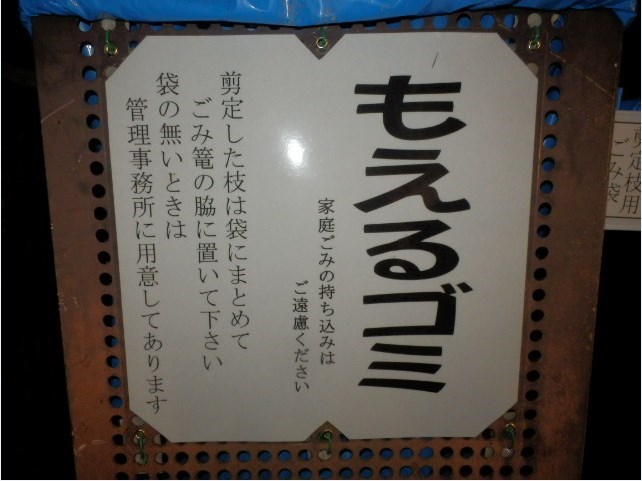 もえるゴミ
家庭ごみの持ち込みは
ご遠慮ください
剪定した枝は袋にまとめて
ごみ篭の脇に置いて下さい
袋の無いときは
管理事務所に用意してあります
定枝用
ごみ袋